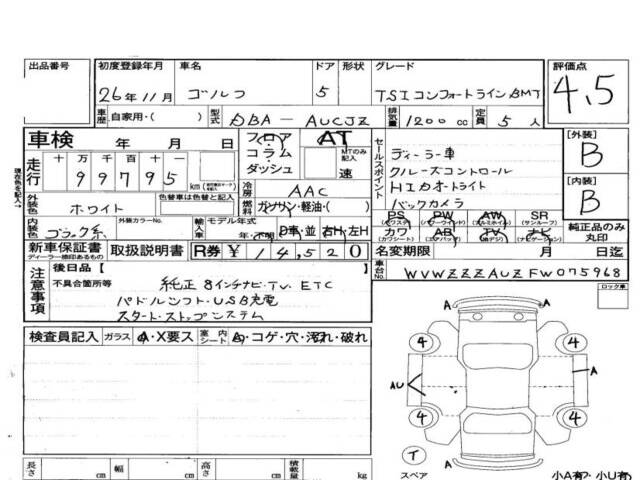 出品番号 初度登録年月 車名 ドア 形状 グレード 評価点
26年11月 ゴルフ 5 TSIコンフォートラインBMT 4.5
車歴 自家用・( ) 型式 DBA-AUCJZ 排気量 1200cc 定員 5人
車検 年 月 日 フロア AT
コラム ダッシュ MTのみ記入 速
走行 十万千百十一 99795km
現在色を記入→
冷房 AAC
外装色 ホワイト 色替車は色替と記入 燃料 ガソリン・軽油・( )
内装色 ブラック系 外装カラーNo. 輸入車 モデル年式 年・不明 D車・並 右H・左H
セールスポイント
ディーラー車
クルーズコントロール
HIDオートライト
バックカメラ
PS (パワステ) PW (パワーウインド) AW (アルミホイル) SR (サンルーフ)
カワ (カワシート) AB (エアバッグ) TV (TV・デジ) ナビ (ナビゲーション)
純正品のみ丸印
[外装] B
[内装] B
新車保証書 ディーラー検印あるもの 取扱説明書 R券 ¥14,520 名変期限 月 日迄
車台No. WVWZZZAUZFW075968
注意事項 後日品【 】
不具合箇所等 純正8インチナビ.TV.ETC
パドルシフト・USB充電
スタート・ストップシステム
ロック車
検査員記入 ガラス A・X要ス 室内シート A・コゲ・穴・汚れ・破れ
A A
4 4
AU A
4 4
イ スペア A
長さ cm 幅 cm 高さ cm 積載量 kg
小A有?・小U有